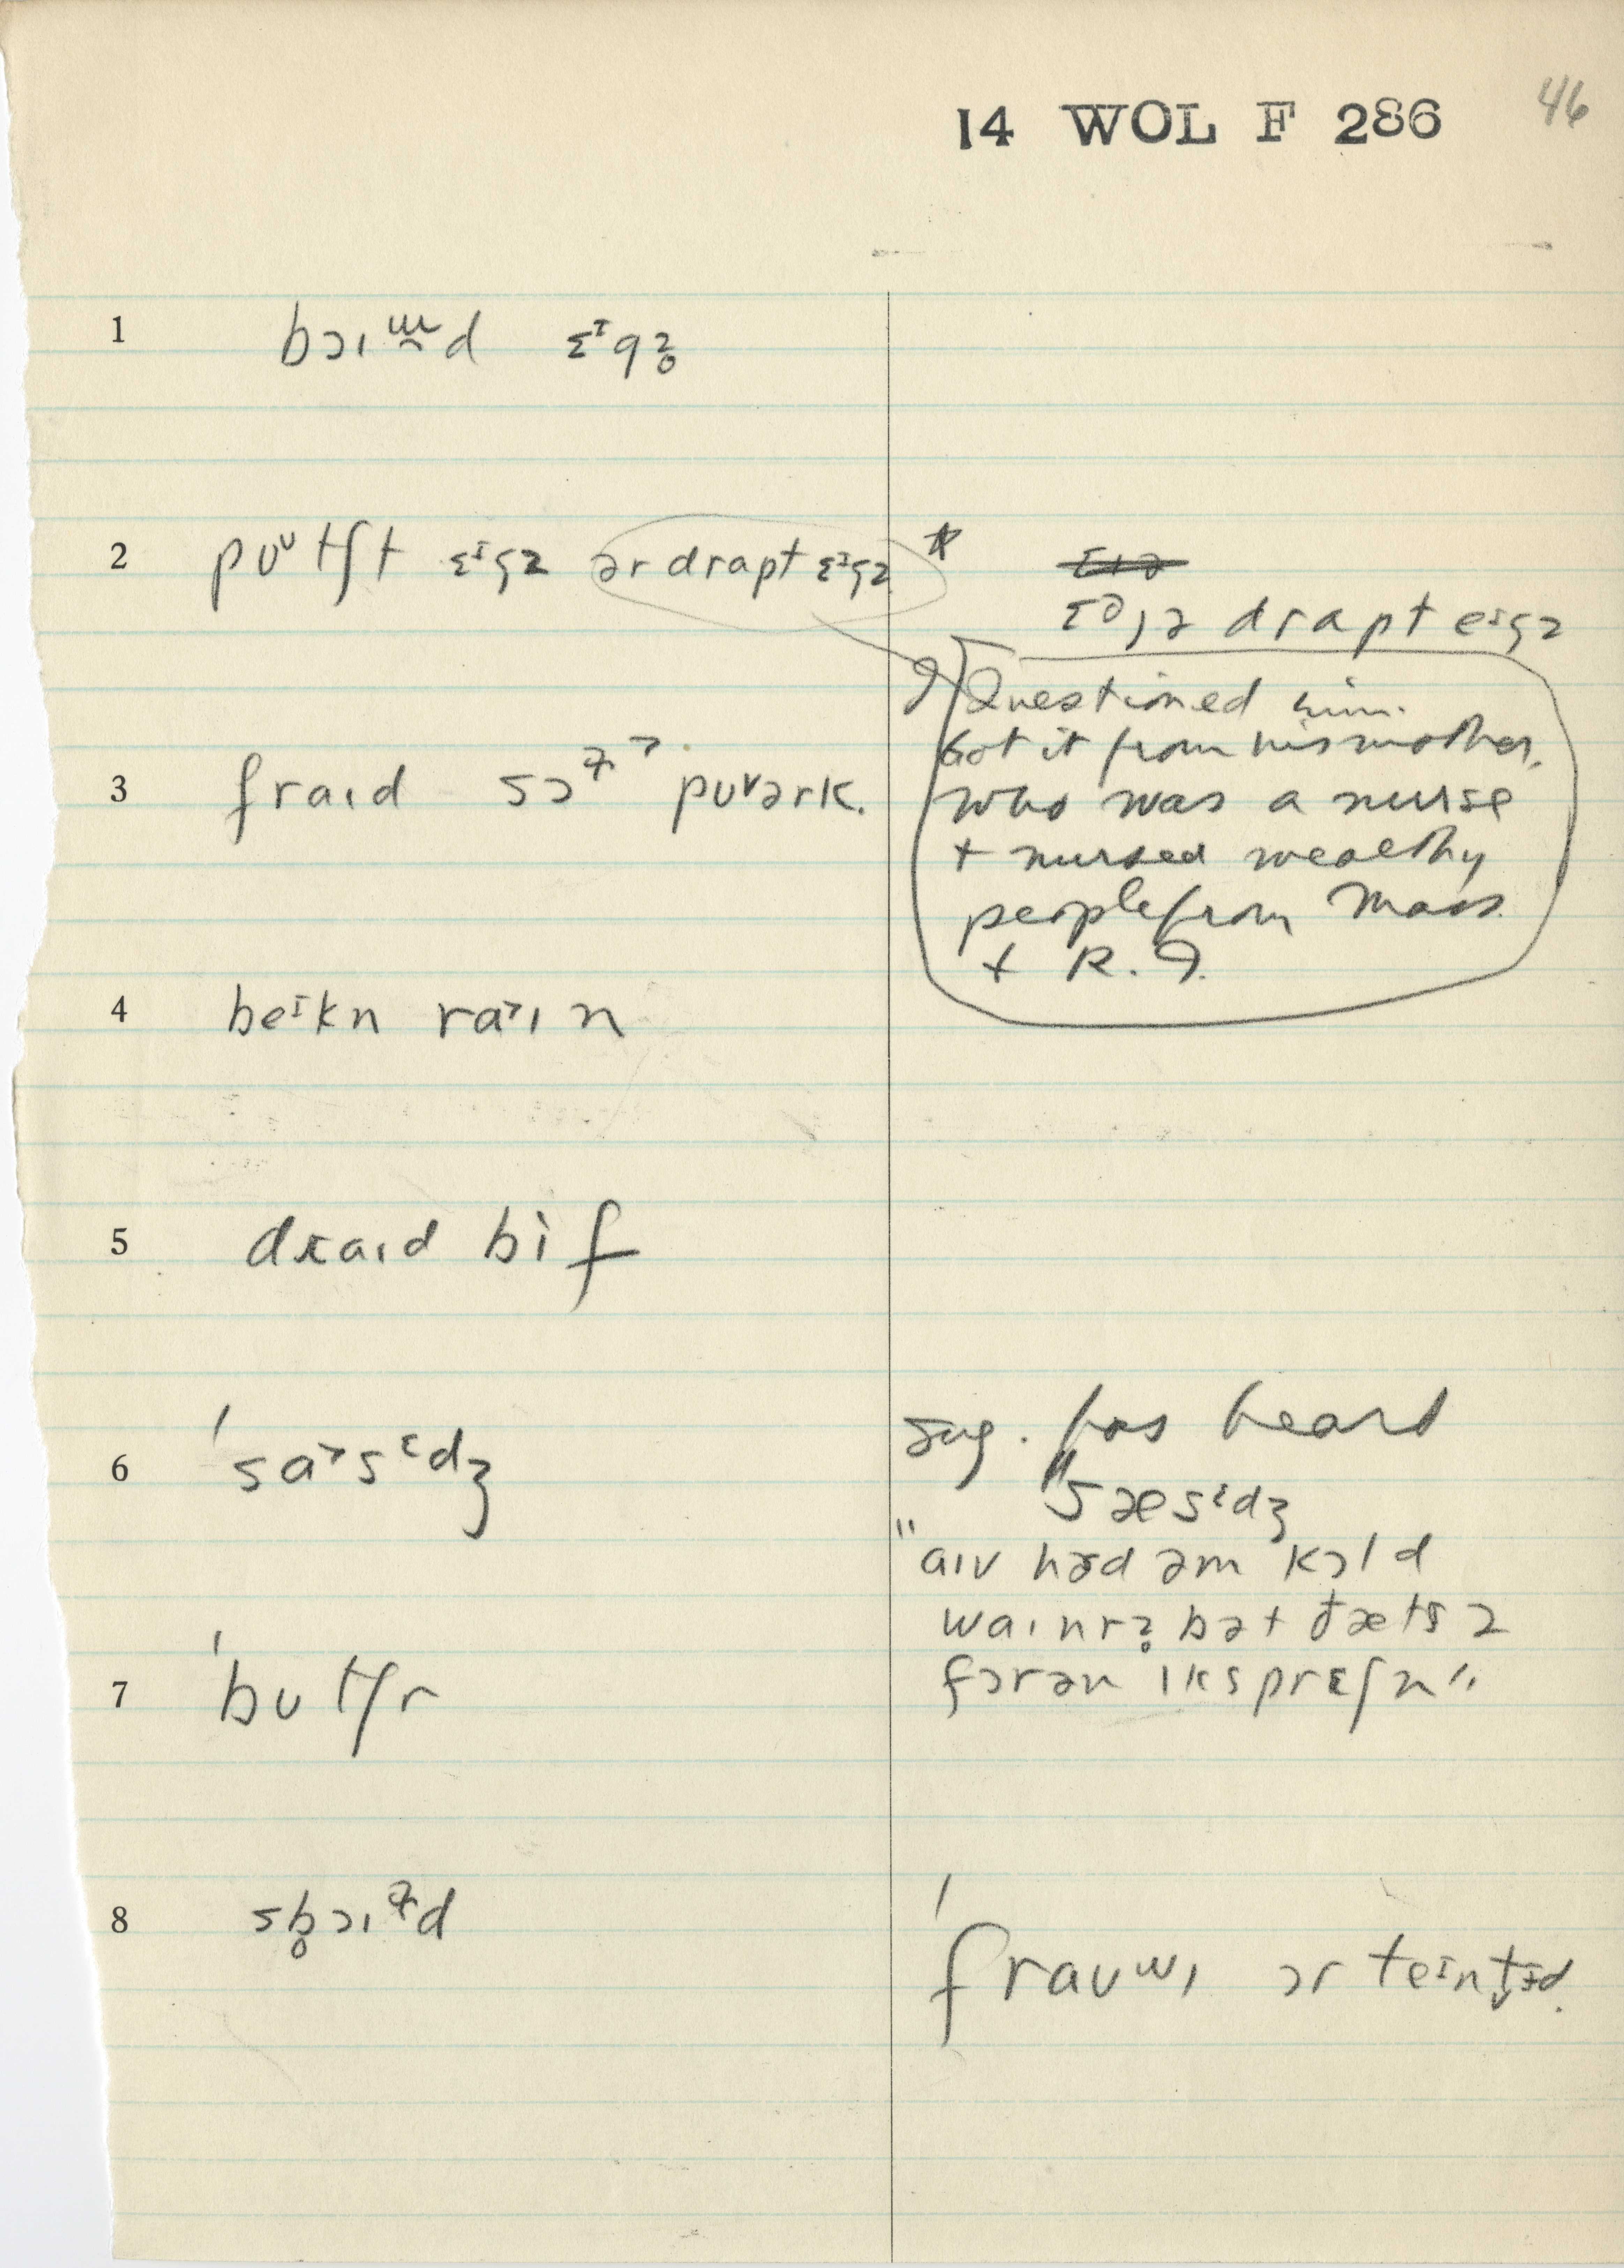 14 WOL F 286 46
1 bɔɪɯ̯d ɛᴵgz̥
2 pʊᶷtʃt ɛᴵgz ər drapt ɛᴵgz *
ɛᵊɪz drapt eᴵgz
Questioned him.
Got it from his mother,
who was a nurse
+ nursed wealthy
people from Mass.
+ R.I.
3 fraɪd sɔ pʊᵛərk.
4 beᴵkn ra˃ɪn
5 draɪd bif
6 'sa˃sᵋdʒ
sug. has heard
"sæsᵋdʒ
"aɪv həd əm kɔld
waɪnrz̥ bət ðæts ə
fɔrən ɪksprɛʃn"
7 'bʊtʃr
8 sb̥ɔɪd
'fraʊʷɪ ɔr teᴵnt̬ɪd.